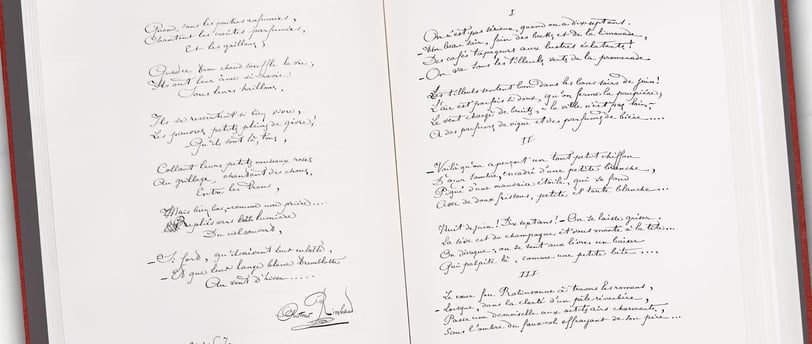 Quand, sous les poutres enfumées,
Chantent les croûtes parfumées,
Et les grillons;
Quand ce trou chaud souffle la vie;
Ils ont leur âme si ravie
Sous leurs haillons,
Ils se ressentent si bien vivre,
Les pauvres petits pleins de givre!
- Qu'ils sont là, tous,
Collant leurs petits museaux roses
Au grillage, chantant des choses,
Entre les trous,
Mais bien bas,-comme une prière....
Repliés vers cette lumière
Du ciel rouvert,
- Si fort, qu'ils crèvent leur culotte,
- Et que leur lange blanc tremblotte
Au vent d'hiver.....
Arthur Rimbaud
I
On n'est pas sérieux, quand on a dix sept ans.
- Un beau soir, foin des bocks et de la limonade,
Des cafés tapageurs aux lustres éclatants!
- On va sous les tilleuls verts de la promenade
Les tilleuls sentent bon dans les bons soirs de juin!
L'air est parfois si doux, qu'on ferme la paupière;
Le vent chargé de bruits,- la ville n'est pas loin,-
A des parfums de vigne et des parfums de bière....
II
- Voilà qu'on aperçoit un tout petit chiffon
D'azur sombre, encadré d'une petite branche,
Piqué d'une mauvaise étoile, qui se fond
Avec de doux frissons, petite et toute blanche...
Nuit de juin! Dix sept ans! - On se laisse griser.
La sève est du champagne et vous monte à la tête...
On divague; on se sent aux lèvres un baiser
Qui palpite là, comme une petite bête....
III
Le cœur fou Robinsonne à travers les romans,
- Lorsque, dans la clarté d'un pâle réverbère,
Passe une demoiselle aux petits airs charmants,
Sous l'ombre du faux-col effrayant de son père...